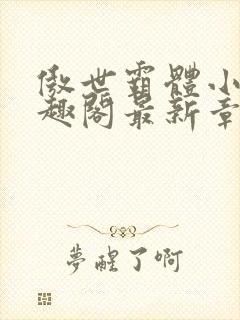 傲世霸體小
趣閣最新章
夢醒了啊